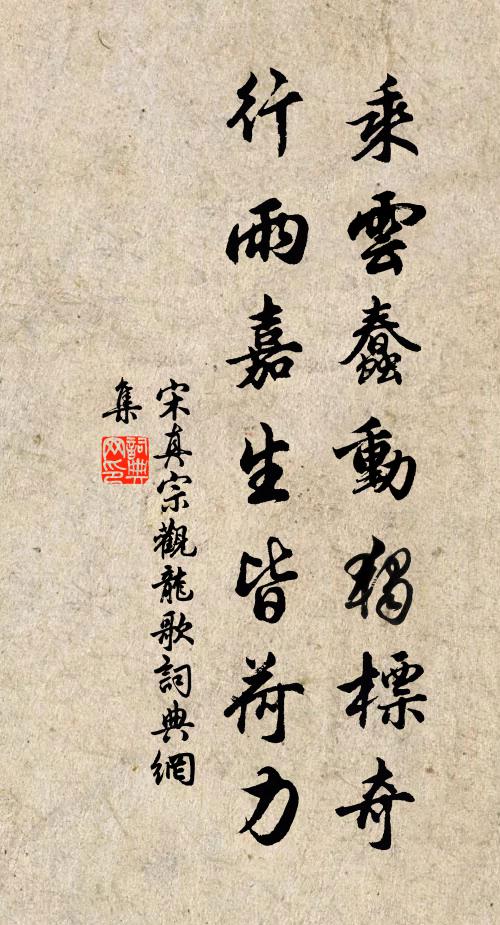 乘雲蠢動獨標奇
行雨嘉生皆荷力
宋真宗觀龍歌詞典網
集
詞典网印